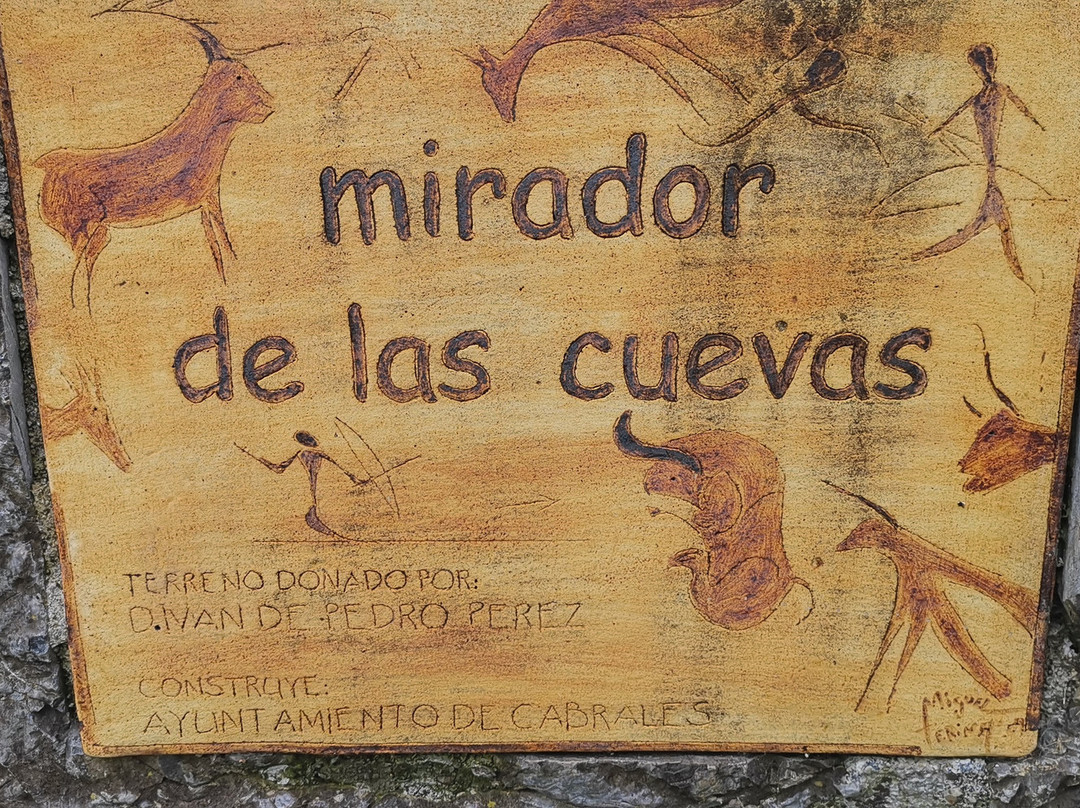 mirador
de las cuevas
TERRENO DONADO POR:
D.IVAN DE PEDRO PEREZ
CONSTRUYE:
AYUNTAMIENTO DE CABRALES
Miguel